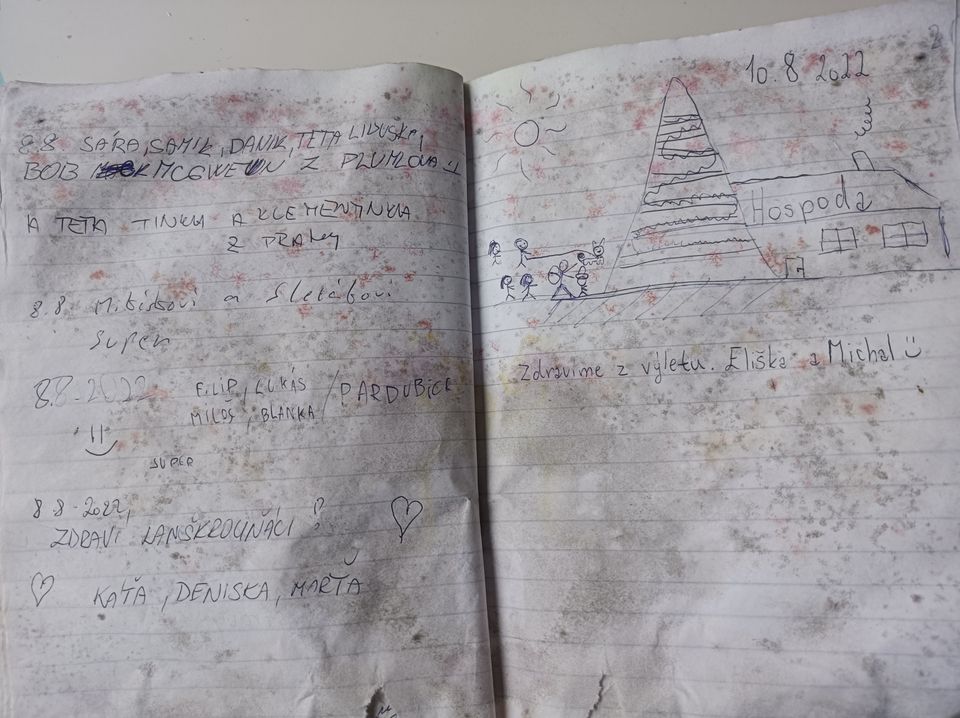 8.8 SÁRA, SAMÍK, DANÍK, TETA LIDUŠKA,
BOB MCGWEUN Z PLUMLOVA
A TETA TINKA A KLEMENTINKA
Z PRAHY
8.8. a
Super
8.8.2022 FILIP, LUKÁŠ / PARDUBICE
MILOŠ, BLANKA
SUPER
8.8.2022,
ZDRAVÍ LANŠKROUŇÁCI
KAŤA, DENISKA, MARŤA
2
10.8 2022
Hospoda
Zdravíme z výletu. Eliška a Michal